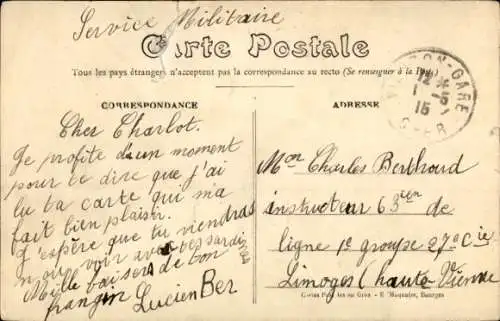 Service Militaire
Carte Postale
Tous les pays étrangers n'acceptent pas la correspondance au recto (Se renseigner à la Poste)
CORRESPONDANCE
Cher Charlot.
Je profite d'un moment
pour te dire que j'ai
lu ta carte qui m'a
fait bien plaisir.
J'espère que tu viendras
nous voir avec
Mille baisers de ton
frangin Lucien Ber
ADRESSE
12 15
1 - 5
15
CHER
Mon Charles Berthoud
instructeur 63ien de
ligne 1e groupe 27e Cie
Limoges (Haute-Vienne
Bourges